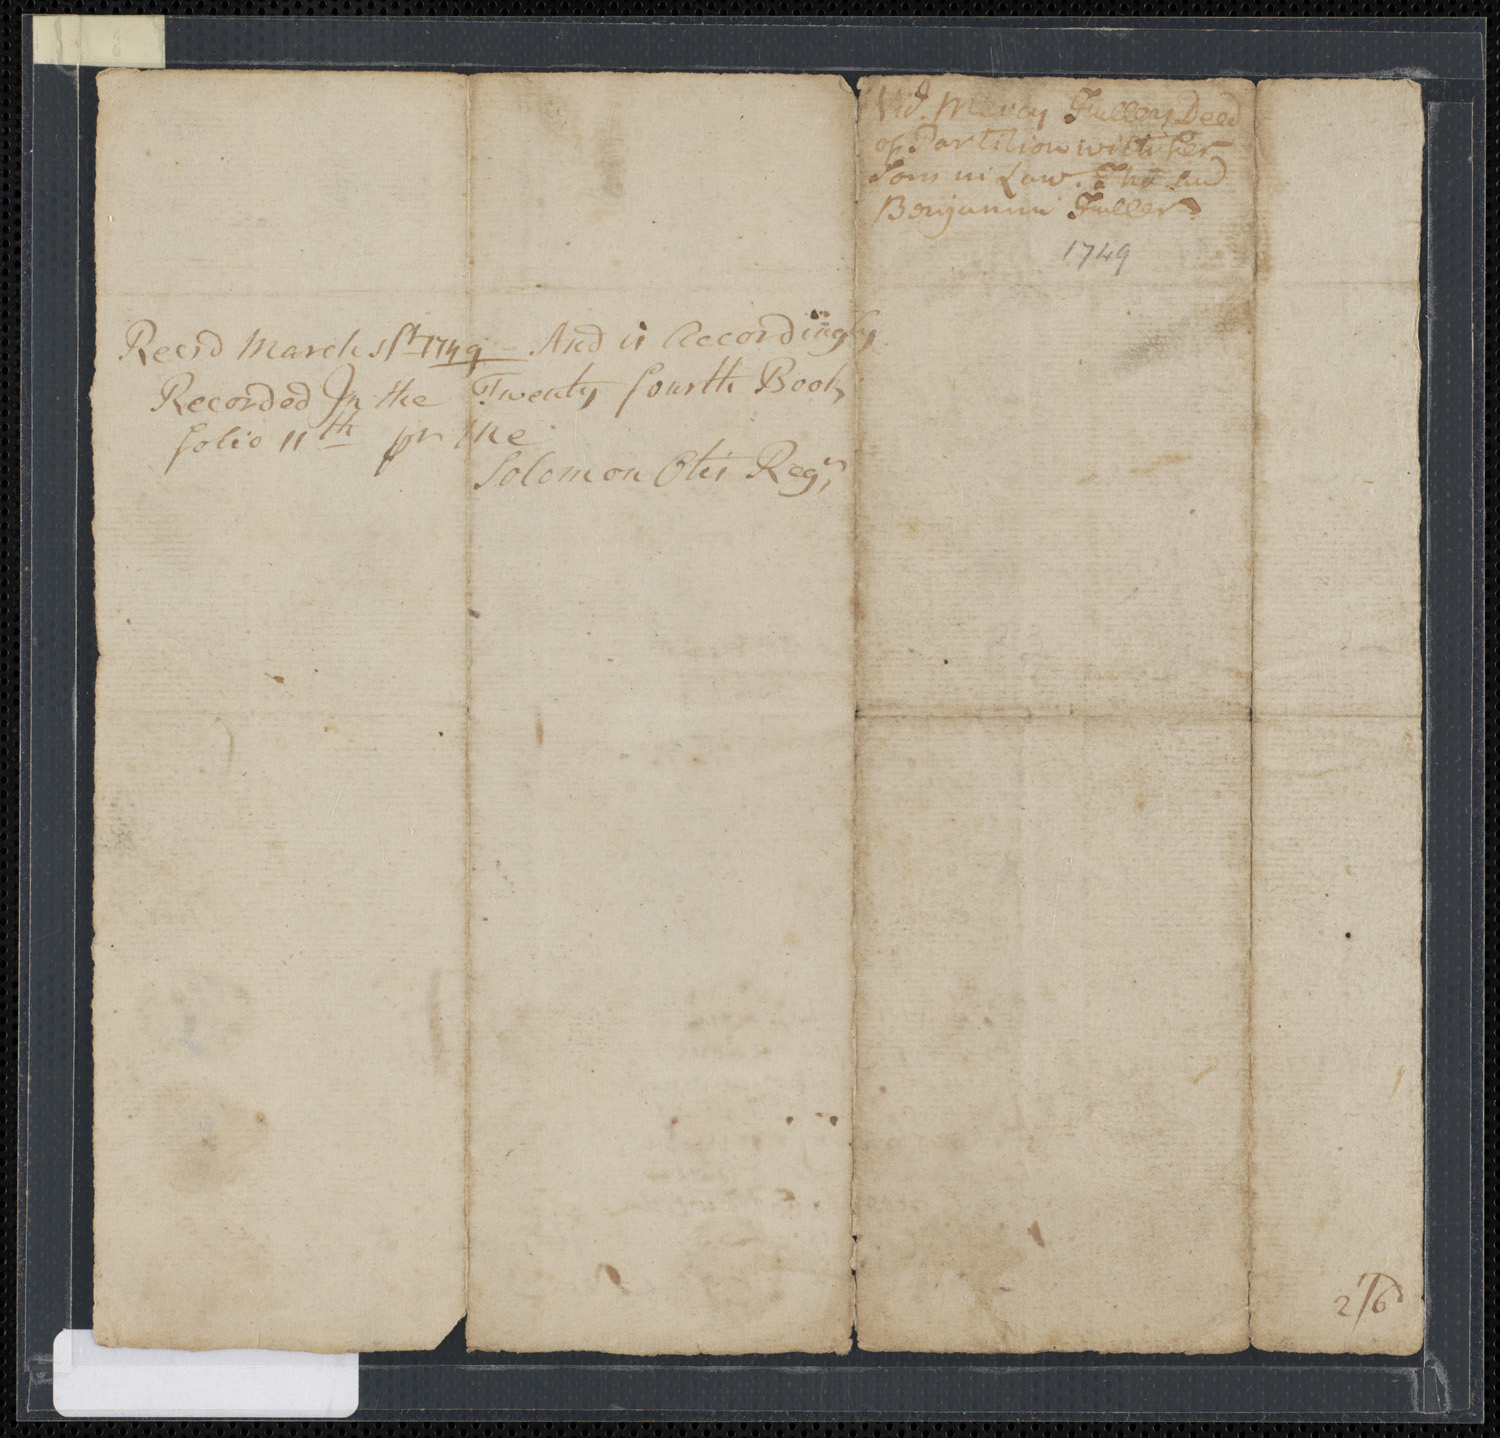 Wid. Mercy Fullers Deed
of Partition with her
Sons in Law. Tho and
Benjamin Fuller
1749
Recrd March 1st 1749 - And is Accordingly
Recorded In the Twenty fourth Book,
folio 11th pr me
Solomon Otis Regr,
2/6d